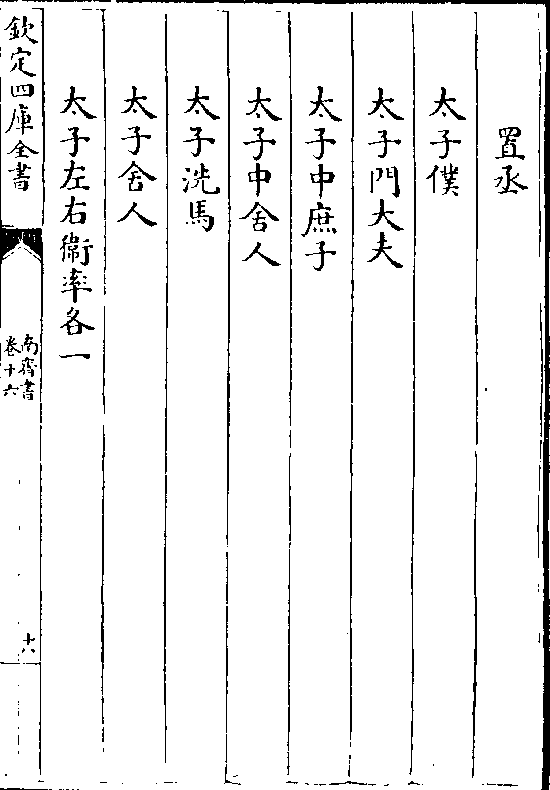 置丞
太子僕
太子門大夫
太子中庶子
太子中舍人
太子洗馬
太子舍人
太子左右衛率各一
欽定四庫全書
南齊書
卷十六
十六